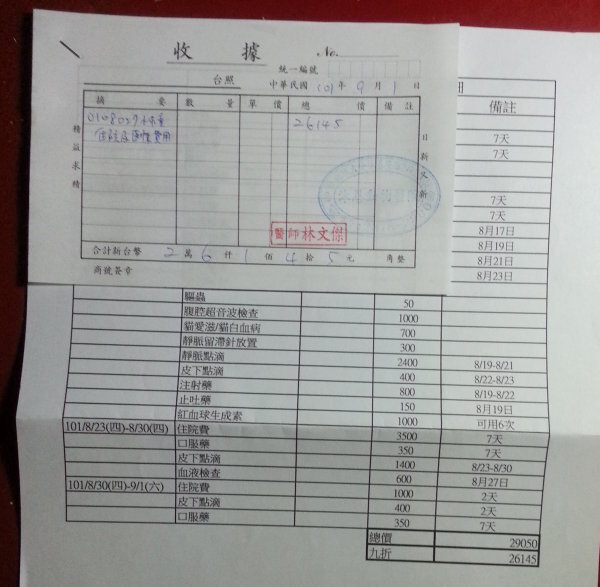 收 據 No.
統一編號
台照 中華民國 101 年 9 月 1 日
摘 要 數 量 單 價 總 價 備 註
0108029 26145
住院及醫療費用
精益求精
日新又新
醫師 林文傑
合計新台幣 2 萬 6 仟 1 佰 4 拾 5 元 角整
商號簽章
備註
7天
7天
7天
7天
8月17日
8月19日
8月21日
8月23日
驅蟲 50
腹腔超音波檢查 1000
貓愛滋/貓白血病 700
靜脈留滯針放置 300
靜脈點滴 2400 8/19-8/21
皮下點滴 400 8/22-8/23
注射藥 800 8/19-8/22
止吐藥 150 8月19日
紅血球生成素 1000 可用6次
101/8/23(四)-8/30(四) 住院費 3500 7天
口服藥 350 7天
皮下點滴 1400 8/23-8/30
血液檢查 600 8月27日
101/8/30(四)-9/1(六) 住院費 1000 2天
皮下點滴 400 2天
口服藥 350 7天
總價 29050
九折 26145